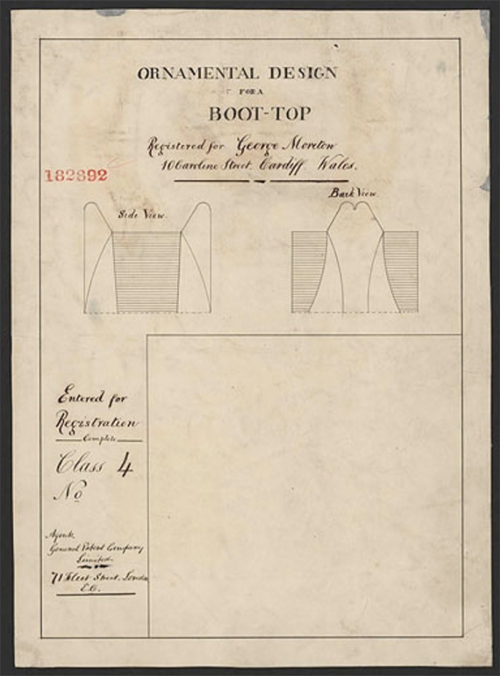 ORNAMENTAL DESIGN
FOR A
BOOT-TOP
Registered for George Moreton
10 Caroline Street, Cardiff Wales.
182892
Side View.
Back View.
Entered for
Registration
Complete
Class 4
No
Agents
General Patent Company
Limited
71 Fleet Street, London
E.C.